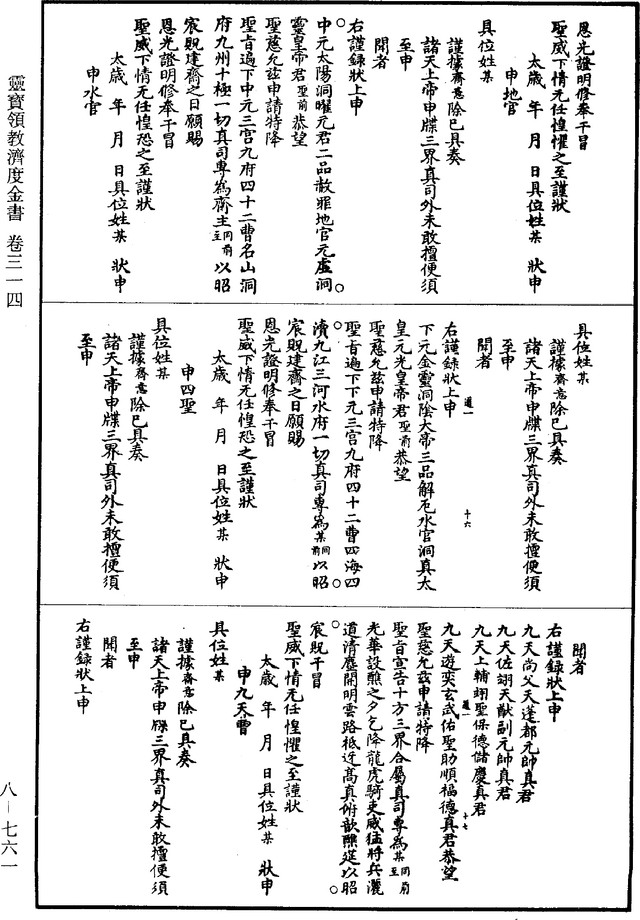 恩光證明修奉干冒
聖威下情无任惶懼之至謹狀
太歲　年　月　日具位姓某　狀申
申地官
具位姓某
謹據齋意除已具奏
諸天上帝申牒三界真司外未敢擅便須
至申
聞者
右謹錄狀上申
中元太陽洞曜元君二品赦罪地官元虛洞
靈皇帝君聖前恭望
聖慈允兹申請特降
聖旨遍下中元三宮九府四十二曹名山洞
府九州十極一切真司專為齋主同前至以昭
宸貺建齋之日願賜
恩光證明修奉干冒
聖威下情无任惶恐之至謹狀
太歲　年　月　日具位姓某　狀申
申水官
具位姓某
謹據齋意除已具奏
諸天上帝申牒三界真司外未敢擅便須
至申
聞者
右謹錄狀上申
下元金靈洞陰大帝三品解厄水官洞真太
皇元光皇帝君聖前恭望
聖慈允兹申請特降
聖旨遍下下元三宮九府四十二曹四海四
瀆九江三河水府一切真司專為某同前以昭
宸貺建齋之日願賜
恩光證明修奉干冒
聖威下情无任惶恐之至謹狀
太歲　年　月　日具位姓某　狀申
申四聖
具位姓某
謹據齋意除已具奏
諸天上帝申牒三界真司外未敢擅便須
至申
聞者
右謹錄狀上申
九天尚父天蓬都元帥真君
九天佐翊天猷副元帥真君
九天上輔翊聖保德儲慶真君
九天遊奕玄武佑聖助順福德真君恭望
聖慈允兹申請特降
聖旨宣告十方三界合屬真司專為某同前至
光華設醮之夕乞降龍虎騎吏威猛將兵灑
道清塵開明雲路祗迓高真俯歆醮筵以昭
宸貺干冒
聖威下情无任惶懼之至謹狀
太歲　年　月　日具位姓某　狀申
申九天曹
具位姓某
謹據齋意除已具奏
諸天上帝申牒三界真司外未敢擅便須
至申
聞者
右謹錄狀上申
道一
十六
道一
十七
靈寶領教濟度金書　卷三一四
八－七六一